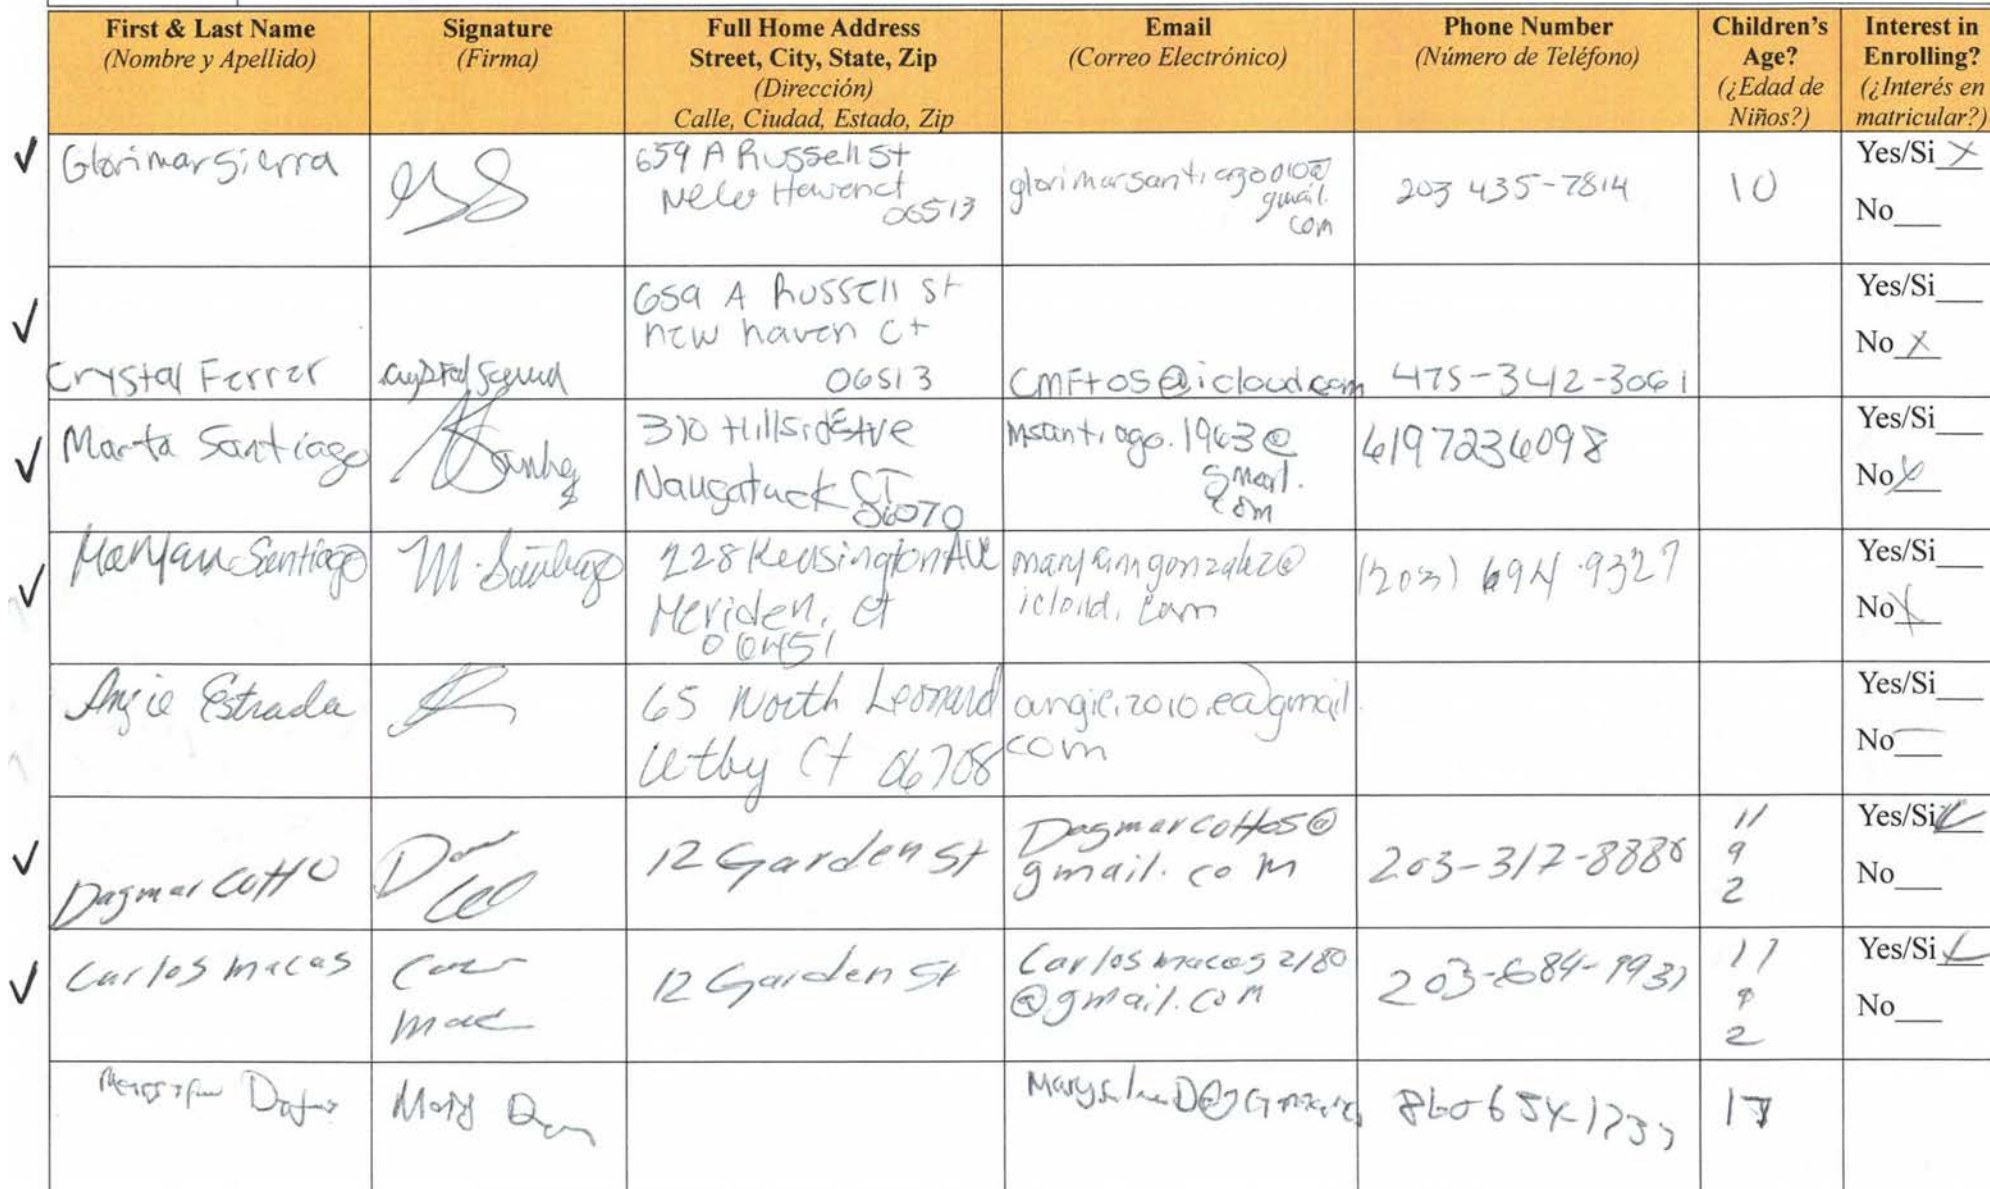 First & Last Name
(Nombre y Apellido)
Signature
(Firma)
Full Home Address
Street, City, State, Zip
(Dirección)
Calle, Ciudad, Estado, Zip
Email
(Correo Electrónico)
Phone Number
(Número de Teléfono)
Children's
Age?
(¿Edad de
Niños?)
Interest in
Enrolling?
(¿Interés en
matricular?)
Glorimar Sierra
659 A Russell St
New Haven ct
06513
glorimarsantiago010@
gmail.
com
203 435-7814
10
Yes/Si X
No
Crystal Ferrer
659 A Russell St
new haven Ct
06513
CMFt05@icloud.com
475-342-3061
Yes/Si
No X
Marta Santiago
310 Hillside Ave
Naugatuck CT
06070
Mstantiago.1963@
gmail.
com
6197236098
Yes/Si
No X
Santiago
M. Santiago
228 Kensington AVE
Meriden, ct
06451
maryanngonzalez@
icloud.com
(203) 694-9327
Yes/Si
No X
Angie Estrada
65 North Leonard
Wtby Ct 06708
angie.2010.ea@gmail.
com
Yes/Si
No
Dagmar Cotto
12 Garden St
Dagmarcotto5@
gmail.com
203-317-8886
11
9
2
Yes/Si
No
Carlos macas
12 Garden St
Carlosmacas2180
@gmail.com
203-684-9937
11
9
2
Yes/Si
No
17